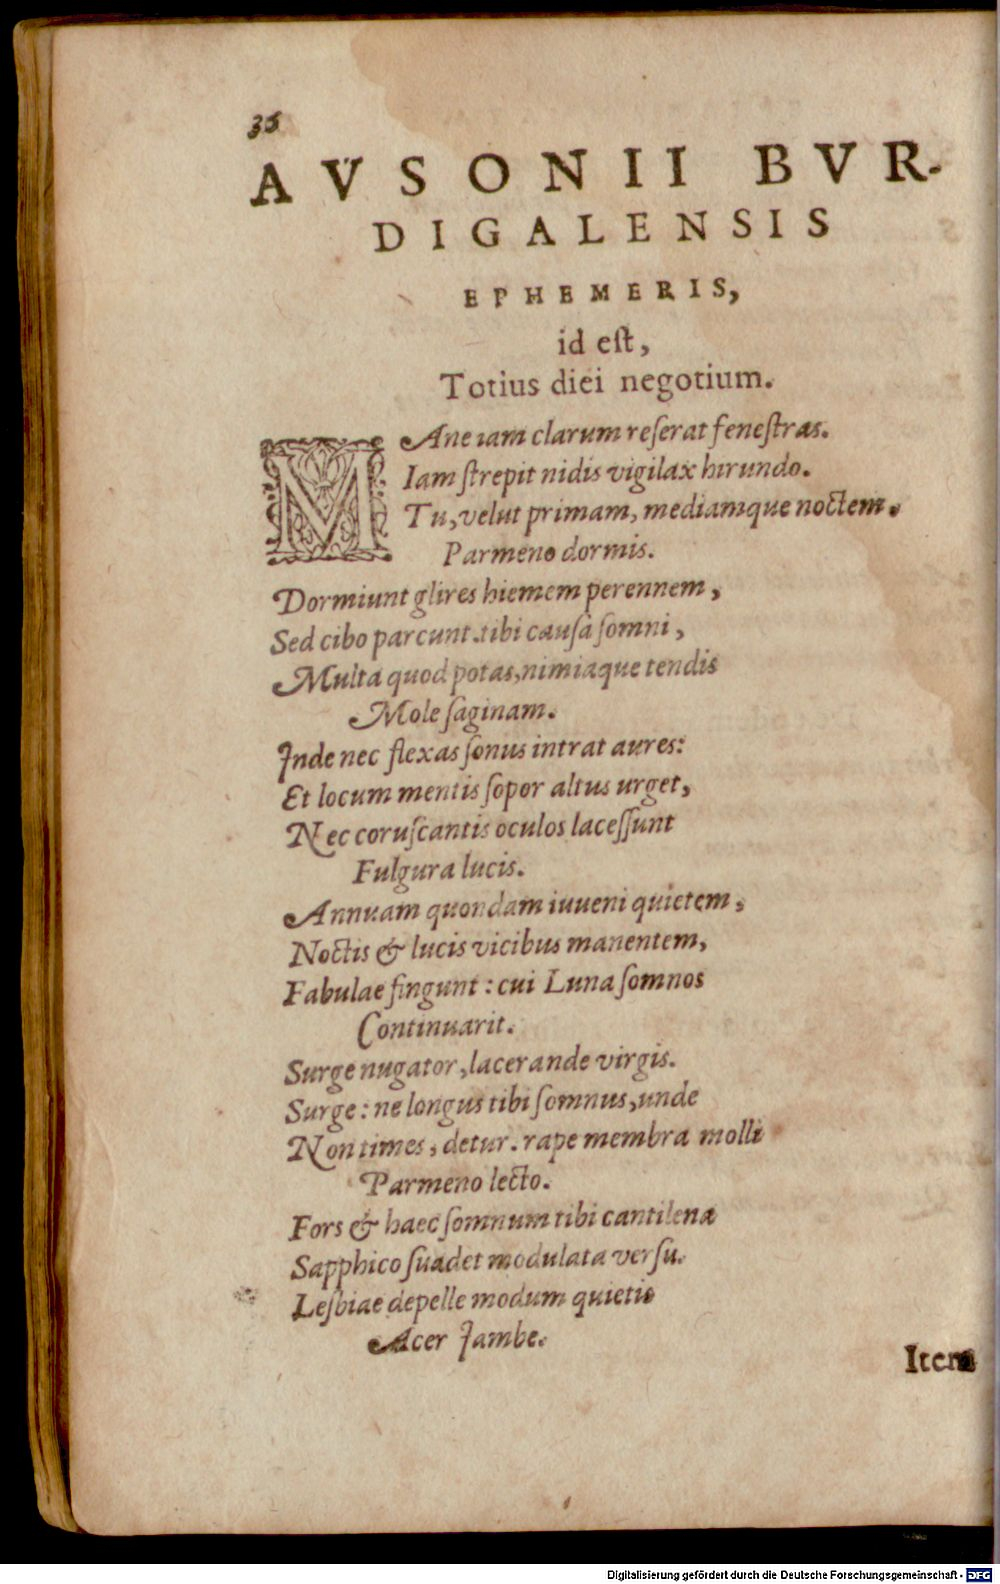 36
AVSONII BVR-
DIGALENSIS
EPHEMERIS,
id eſt,
Totius diei negotium.
MAne iam clarum reſerat feneſtras.
Iam ſtrepit nidis vigilax hirundo.
Tu, velut primam, mediamque noctem.
Parmeno dormis.
Dormiunt glires hiemem perennem,
Sed cibo parcunt. tibi cauſa ſomni,
Multa quod potas, nimiaque tendis
Mole ſaginam.
Inde nec flexas ſonus intrat aures:
Et locum mentis ſopor altus urget,
Nec coruſcantis oculos laceſſunt
Fulgura lucis.
Annuam quondam iuueni quietem,
Noctis & lucis vicibus manentem,
Fabulae fingunt: cui Luna ſomnos
Continuarit.
Surge nugator, lacerande virgis.
Surge: ne longus tibi ſomnus, unde
Non times, detur. rape membra molli
Parmeno lecto.
Fors & haec ſomnum tibi cantilena
Sapphico ſuadet modulata verſu.
Leſbiae depelle modum quietis
Acer Jambe.
Item
Digitalisierung gefördert durch die Deutsche Forschungsgemeinschaft - DFG